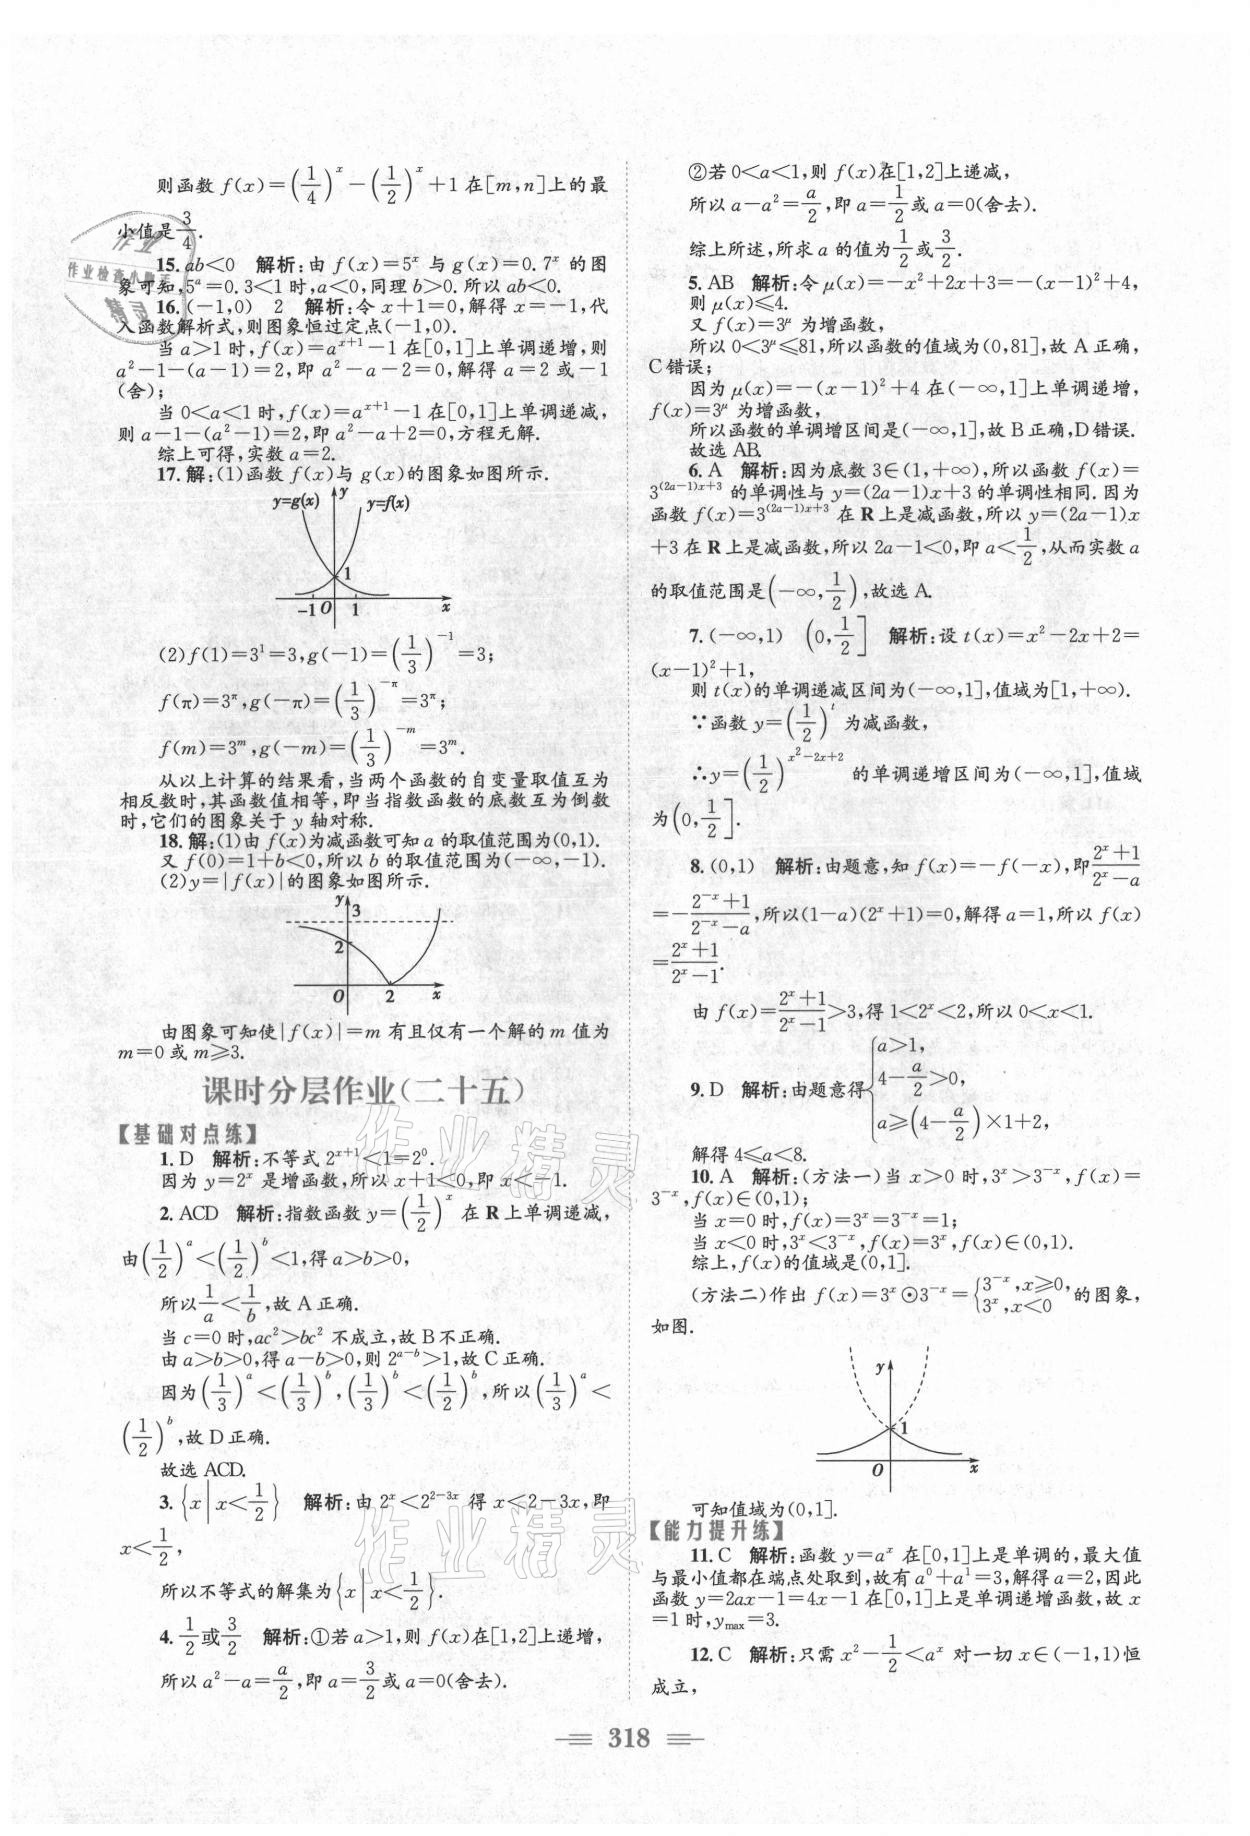 则函数 f(x)=(1/4)^x-(1/2)^x+1 在[m,n]上的最
小值是3/4.
15. ab<0 解析:由 f(x)=5^x 与 g(x)=0.7^x 的图
象可知,5^a=0.3<1时,a<0,同理 b>0.所以 ab<0.
16. (-1,0) 2 解析:令 x+1=0,解得 x=-1,代
入函数解析式,则图象恒过定点(-1,0).
当 a>1 时,f(x)=a^{x+1}-1 在[0,1]上单调递增,则
a^2-1-(a-1)=2,即 a^2-a-2=0,解得 a=2 或-1
(舍);
当 0<a<1 时,f(x)=a^{x+1}-1 在[0,1]上单调递减,
则 a-1-(a^2-1)=2,即 a^2-a+2=0,方程无解.
综上可得,实数 a=2.
17. 解:(1)函数 f(x)与 g(x)的图象如图所示.
y=g(x) y y=f(x)
1
-1 O 1 x
(2)f(1)=3^1=3,g(-1)=(1/3)^{-1}=3;
f(π)=3^π,g(-π)=(1/3)^{-π}=3^π;
f(m)=3^m,g(-m)=(1/3)^{-m}=3^m.
从以上计算的结果看,当两个函数的自变量取值互为
相反数时,其函数值相等,即当指数函数的底数互为倒数
时,它们的图象关于 y 轴对称.
18. 解:(1)由 f(x)为减函数可知 a 的取值范围为(0,1).
又 f(0)=1+b<0,所以 b 的取值范围为(-∞,-1).
(2)y=|f(x)|的图象如图所示.
y 3
2
O 2 x
由图象可知使|f(x)|=m 有且仅有一个解的 m 值为
m=0 或 m⩾3.
课时分层作业(二十五)
【基础对点练】
1. D 解析:不等式 2^{x+1}<1=2^0.
因为 y=2^x 是增函数,所以 x+1<0,即 x<-1.
2. ACD 解析:指数函数 y=(1/2)^x 在 R 上单调递减,
由(1/2)^a<(1/2)^b<1,得 a>b>0,
所以1/a<1/b,故 A 正确.
当 c=0 时,ac^2>bc^2 不成立,故 B 不正确.
由 a>b>0,得 a-b>0,则 2^{a-b}>1,故 C 正确.
因为(1/3)^a<(1/3)^b,(1/3)^b<(1/2)^b,所以(1/3)^a<
(1/2)^b,故 D 正确.
故选 ACD.
3. {x|x<1/2} 解析:由 2^x<2^{2-3x} 得 x<2-3x,即
x<1/2,
所以不等式的解集为{x|x<1/2}.
4. 1/2或3/2 解析:①若 a>1,则 f(x)在[1,2]上递增,
所以 a^2-a=a/2,即 a=3/2或 a=0(舍去).
②若 0<a<1,则 f(x)在[1,2]上递减,
所以 a-a^2=a/2,即 a=1/2或 a=0(舍去).
综上所述,所求 a 的值为1/2或3/2.
5. AB 解析:令 μ(x)=-x^2+2x+3=-(x-1)^2+4,
则 μ(x)⩽4.
又 f(x)=3^μ 为增函数,
所以 0<3^μ⩽81,所以函数的值域为(0,81],故 A 正确,
C 错误;
因为 μ(x)=-(x-1)^2+4 在(-∞,1]上单调递增,
f(x)=3^μ 为增函数,
所以函数的单调增区间是(-∞,1],故 B 正确,D 错误.
故选 AB.
6. A 解析:因为底数 3∈(1,+∞),所以函数 f(x)=
3^{(2a-1)x+3} 的单调性与 y=(2a-1)x+3 的单调性相同.因为
函数 f(x)=3^{(2a-1)x+3} 在 R 上是减函数,所以 y=(2a-1)x
+3 在 R 上是减函数,所以 2a-1<0,即 a<1/2,从而实数 a
的取值范围是(-∞,1/2),故选 A.
7. (-∞,1) (0,1/2] 解析:设 t(x)=x^2-2x+2=
(x-1)^2+1,
则 t(x)的单调递减区间为(-∞,1],值域为[1,+∞).
∵函数 y=(1/2)^t 为减函数,
∴y=(1/2)^{x^2-2x+2} 的单调递增区间为(-∞,1],值域
为(0,1/2].
8. (0,1) 解析:由题意,知 f(x)=-f(-x),即(2^x+1)/(2^x-a)
=-(2^{-x}+1)/(2^{-x}-a),所以(1-a)(2^x+1)=0,解得 a=1,所以 f(x)
=(2^x+1)/(2^x-1).
由 f(x)=(2^x+1)/(2^x-1)>3,得 1<2^x<2,所以 0<x<1.
9. D 解析:由题意得{a>1,
4-a/2>0,
a⩾(4-a/2)×1+2,
解得 4⩽a<8.
10. A 解析:(方法一)当 x>0 时,3^x>3^{-x},f(x)=
3^{-x},f(x)∈(0,1);
当 x=0 时,f(x)=3^x=3^{-x}=1;
当 x<0 时,3^x<3^{-x},f(x)=3^x,f(x)∈(0,1).
综上,f(x)的值域是(0,1].
(方法二)作出 f(x)=3^x⊙3^{-x}={3^{-x},x⩾0, 3^x,x<0 的图象,
如图.
y
1
O x
可知值域为(0,1].
【能力提升练】
11. C 解析:函数 y=a^x 在[0,1]上是单调的,最大值
与最小值都在端点处取到,故有 a^0+a^1=3,解得 a=2,因此
函数 y=2ax-1=4x-1 在[0,1]上是单调递增函数,故 x
=1 时,y_max=3.
12. C 解析:只需 x^2-1/2<a^x 对一切 x∈(-1,1)恒
成立,
318
作业
作业检查小助手
精灵
作业精灵
作业精灵